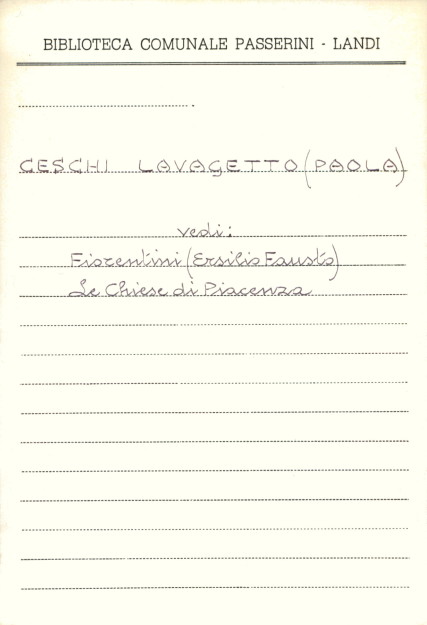 BIBLIOTECA COMUNALE PASSERINI - LANDI
CESCHI LAVAGETTO (PAOLA)
vedi:
Fiorentini (Ersilio Fausto)
Le Chiese di Piacenza